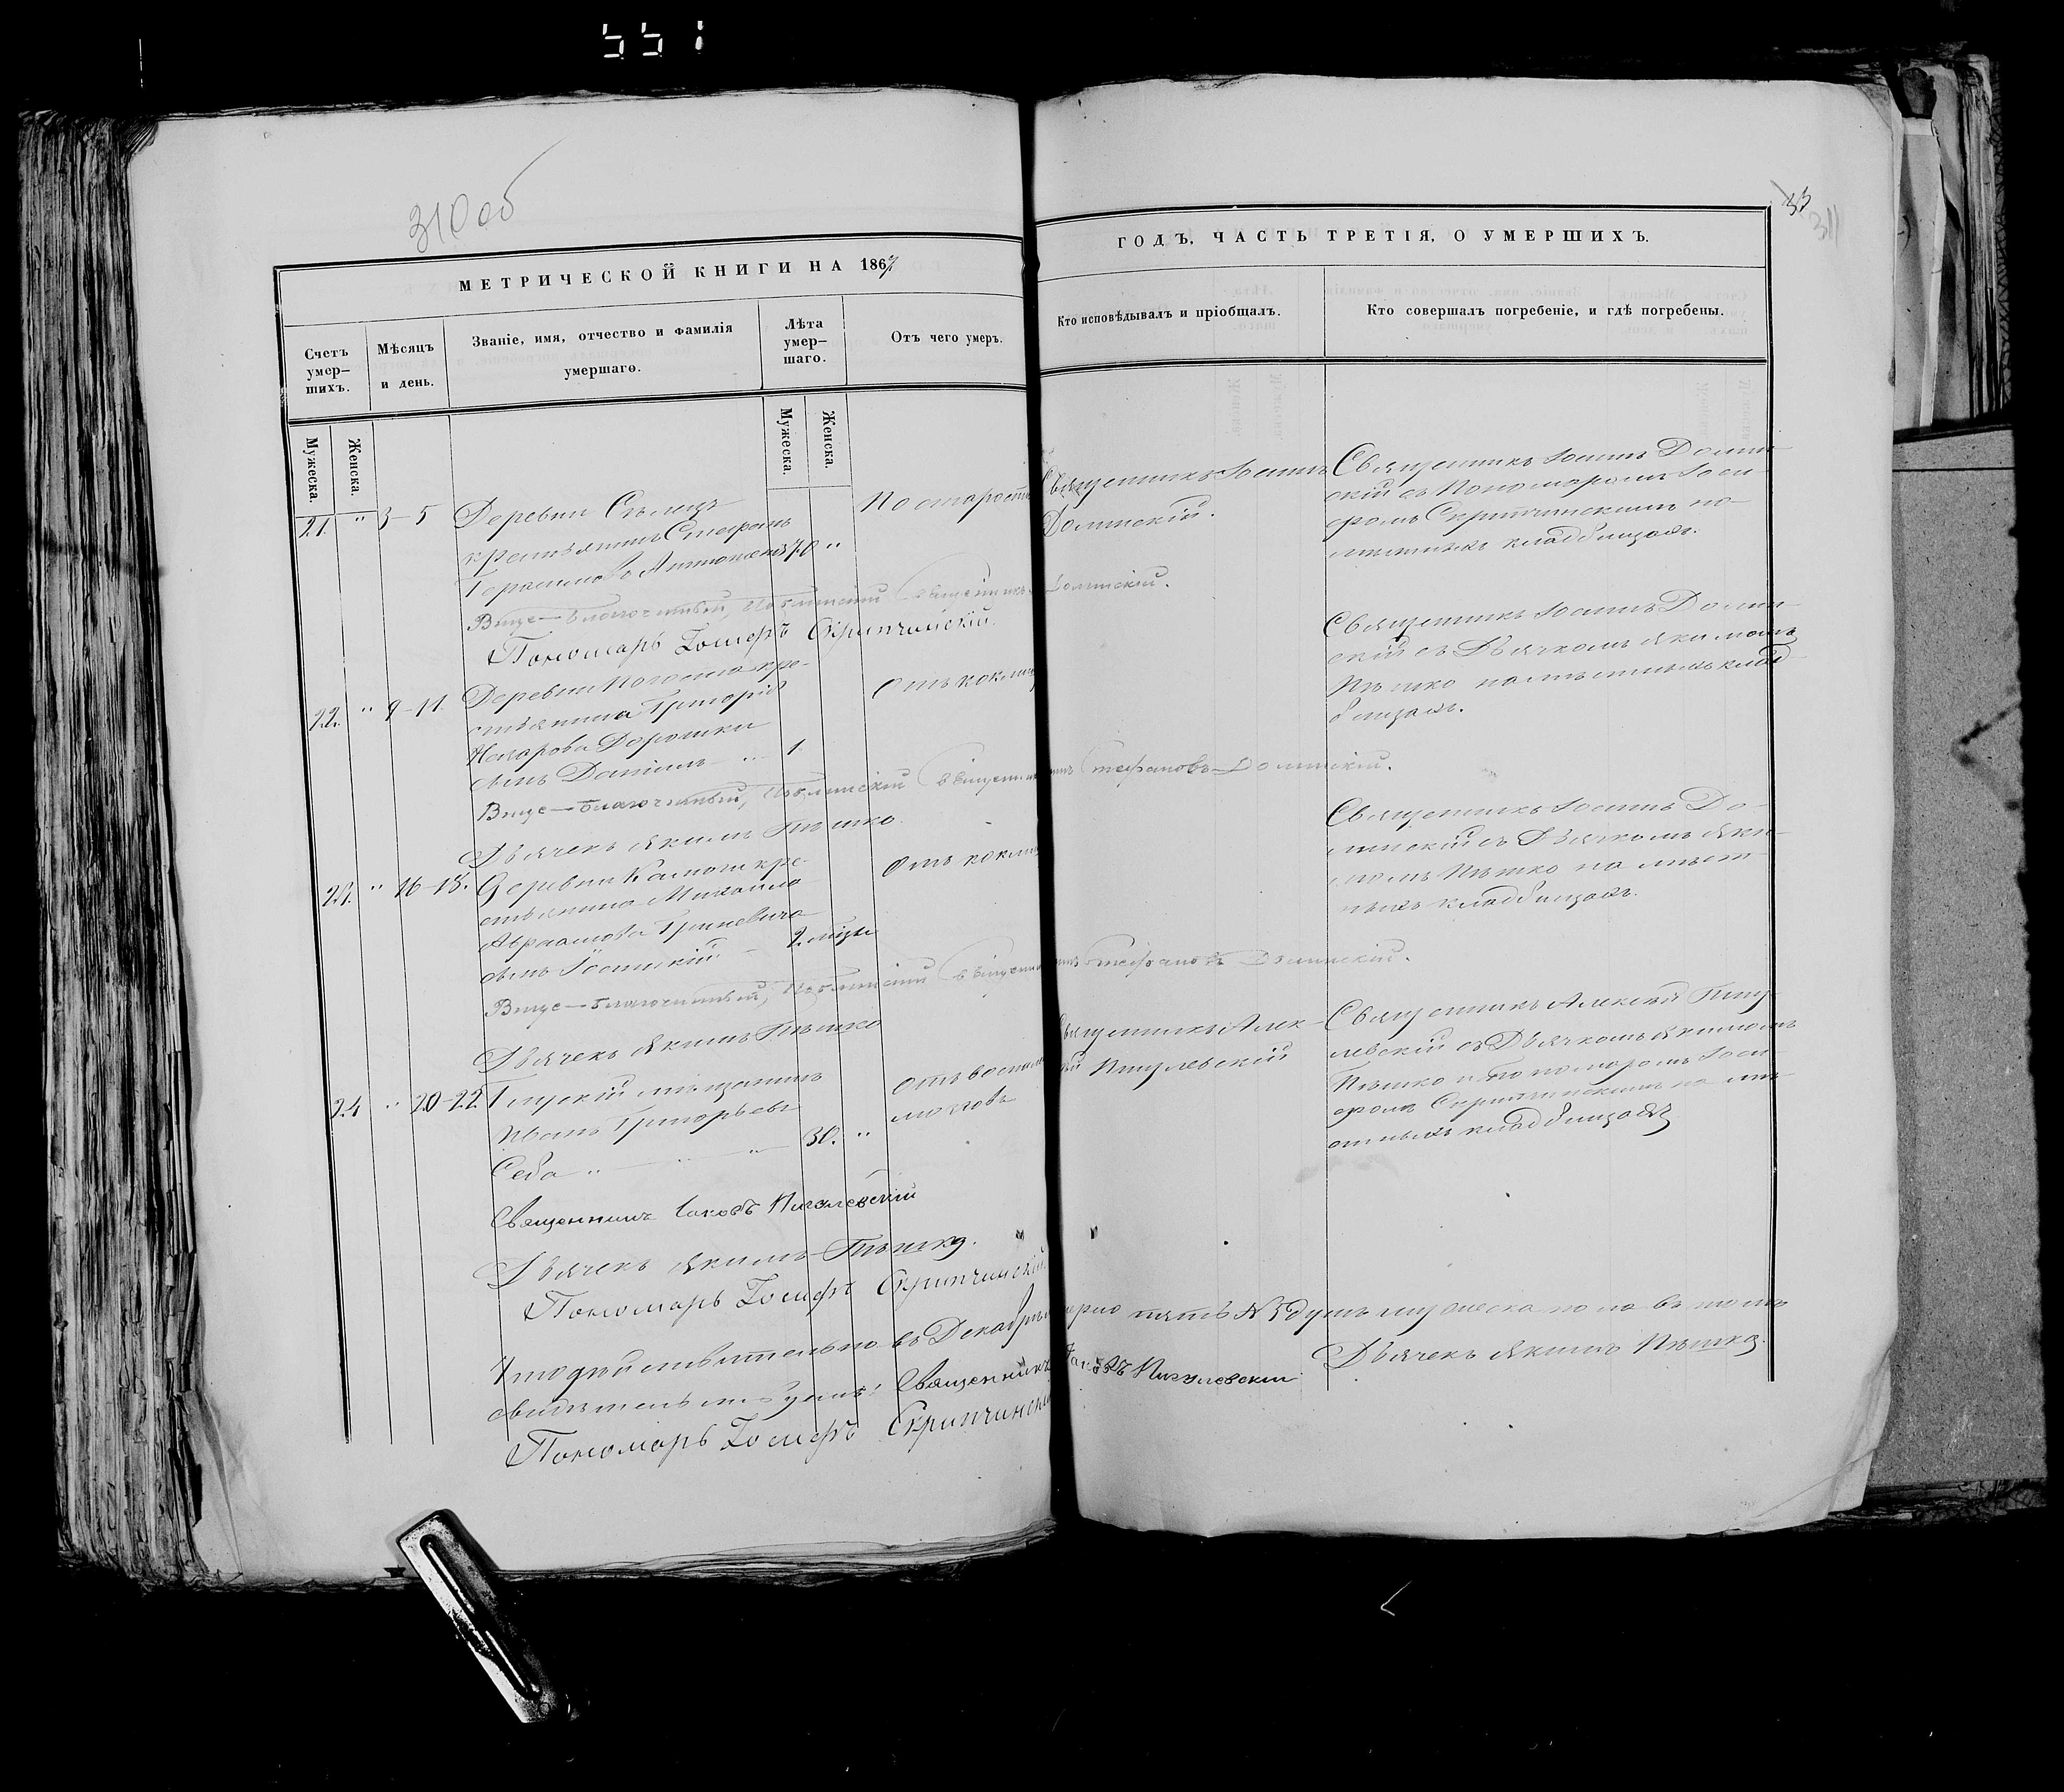 551
310 об
33
311
МЕТРИЧЕСКОЙ КНИГИ НА 1867
ГОДЪ, ЧАСТЬ ТРЕТІЯ, О УМЕРШИХЪ.
Счетъ умер-шихъ.
Мѣсяцъ и день.
Званіе, имя, отчество и фамилія умершаго.
Лѣта умер-шаго.
Отъ чего умеръ.
Кто исповѣдывалъ и пріобщалъ.
Кто совершалъ погребеніе, и гдѣ погребены.
Мужеска.
Женска.
Мужеска.
Женска.
21. " 3-5
Деревни
крестьянинъ Стефанъ
Герасимовъ 70 "
По старости
Священникъ Іоаннъ
Долинскій.
Священникъ Іоаннъ Долин-
скій съ Пономаремъ Іоси-
фомъ Скрипчинскимъ на
мѣстныхъ кладбищахъ.
Вице-благочинный, Священникъ Долинскій.
Пономарь Іосифъ Скрипчинскій.
22. " 9-11
Деревни кре-
стьянина Григорія
Назарова
сынъ Даніилъ 1.
Отъ коклюша
Священникъ Іоаннъ Долин-
скій съ Дьячкомъ Якимомъ
Пѣшко на мѣстныхъ клад-
бищахъ.
Вице-благочинный, Священникъ Стефановъ Долинскій.
Дьячекъ Якимъ Пѣшко.
" 16-18.
Деревни кре-
стьянина Михаила
Авраамова Гриневича
сынъ
Отъ коклюша
Священникъ Іоаннъ До-
линскій съ Дьячкомъ Яки-
момъ Пѣшко на мѣст-
ныхъ кладбищахъ.
Вице-благочинный, Священникъ Стефановъ Долинскій.
Дьячекъ Якимъ Пѣшко
24 " 20-22
Глускій мѣщанинъ
Иванъ Григорьевъ
30. "
Священникъ Алек-
сѣй Пигулевскій
Священникъ Алексѣй Пигу-
левскій съ Дьячкомъ Якимомъ
Пѣшко и Пономаремъ Іоси-
фомъ Скрипчинскимъ на мѣ-
стныхъ кладбищахъ
Священникъ Іаковъ Пигулевскій
Дьячекъ Якимъ Пѣшко.
Пономарь Іосифъ Скрипчинскій
Что дѣйствительно въ Декабрѣ умерло пять № 5 душъ мужеска пола въ томъ
свидѣтельствуемъ: Священникъ Іаковъ Пигулевскій Дьячекъ Якимъ Пѣшко.
Пономарь Іосифъ Скрипчинскій